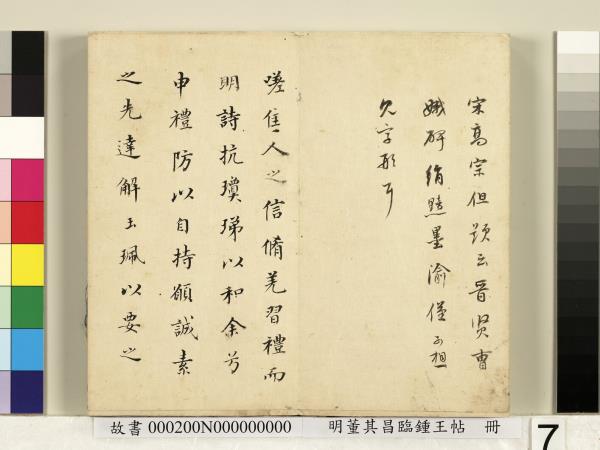 宋高宗但題云晉賢曹
娥碑絹黯墨渝僅可想
見字形耳
嗟佳人之信脩羌習禮而
明詩抗瓊珶以和余兮
申禮防以自持願誠素
之先達解玉珮以要之
故書 000200N000000000 明董其昌臨鍾王帖 冊
7